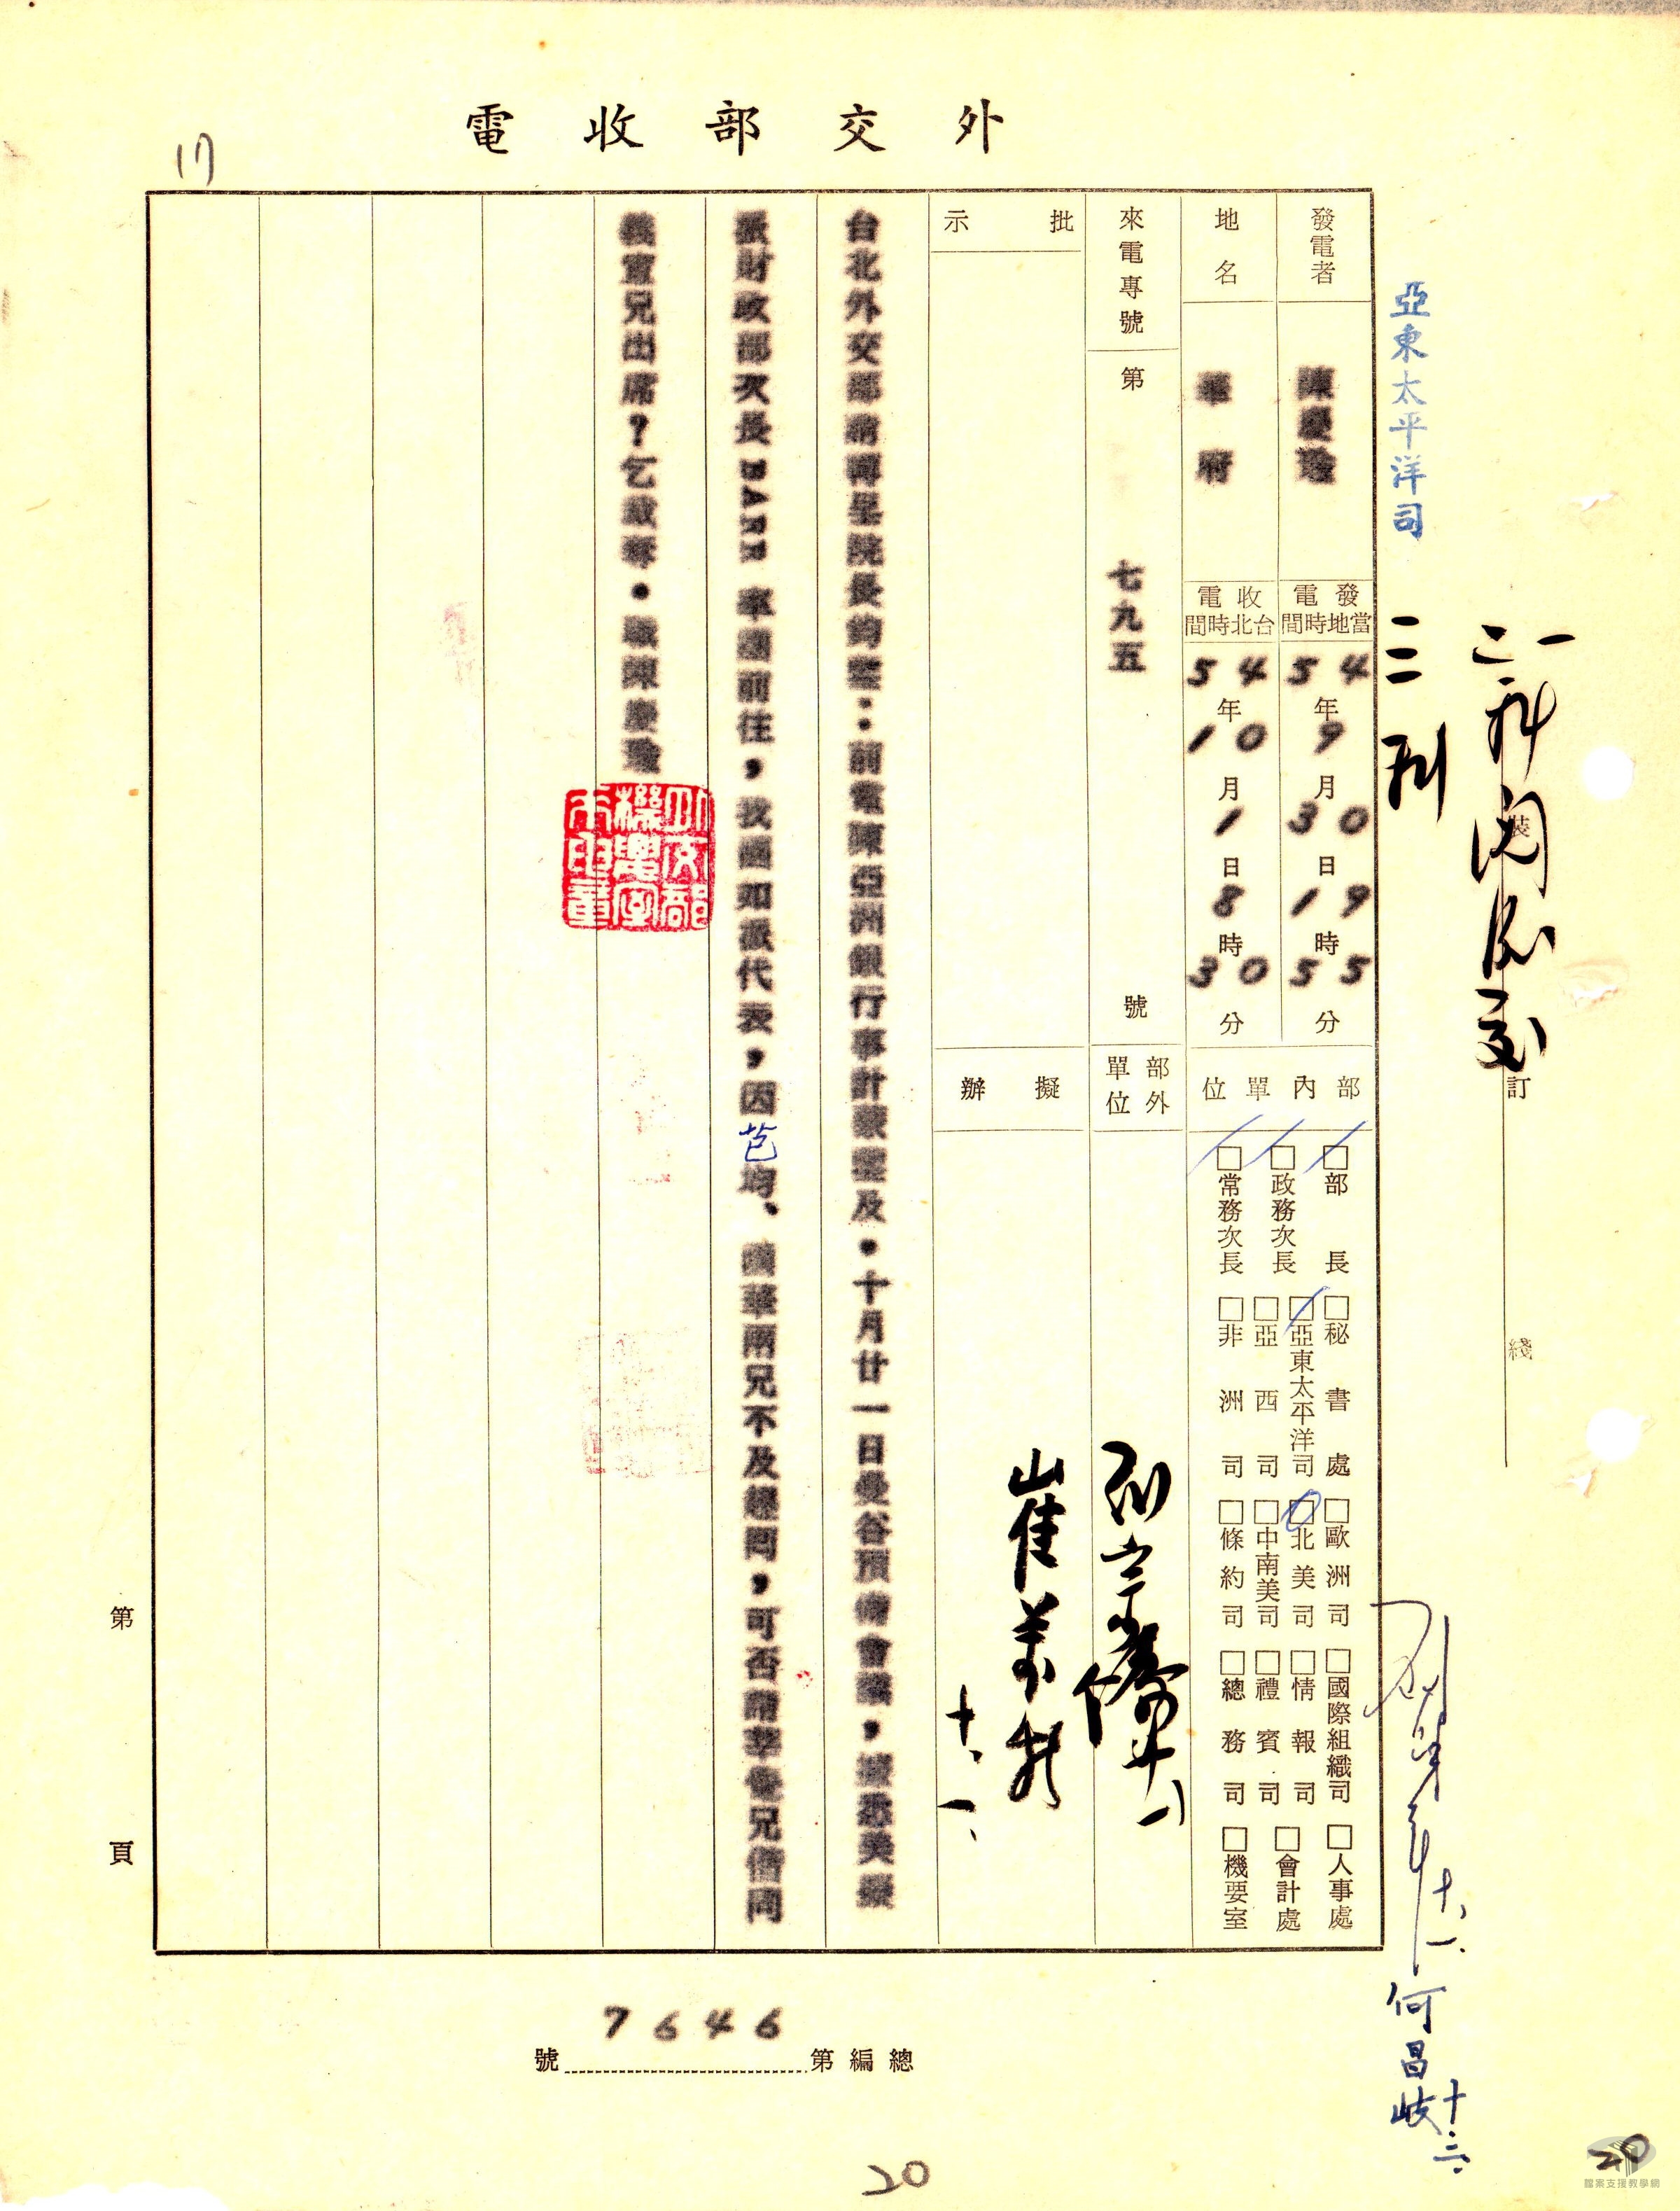 外交部收電
亞東太平洋司
發電者
陳慶瑜
地名
華府
發電當地時間
54年9月30日19時55分
收電台北時間
54年10月1日8時30分
部內單位
□部長
□政務次長
□常務次長
□秘書處
□亞東太平洋司
□亞西司
□非洲司
□歐洲司
□北美司
□中南美司
□條約司
□國際組織司
□情報司
□禮賓司
□總務司
□人事處
□會計處
□機要室
來電專號
第七九五號
部外單位
批示
擬辦
十、一、
台北外交部請轉呈院長鈞鑒：前電陳亞洲銀行事計蒙鑒及。十月廿一日曼谷預備會議，據悉美擬
派財政部次長BARR率團前往，我國如派代表，因芭均、國華兩兄不及趕回，可否請李幹兄偕同
機宣兄出席？乞裁奪。職陳慶瑜
外交部機要室
何昌岐
十、二、
裝
訂
綫
第 頁
總編第7646號
20
20
檔案支援教學網